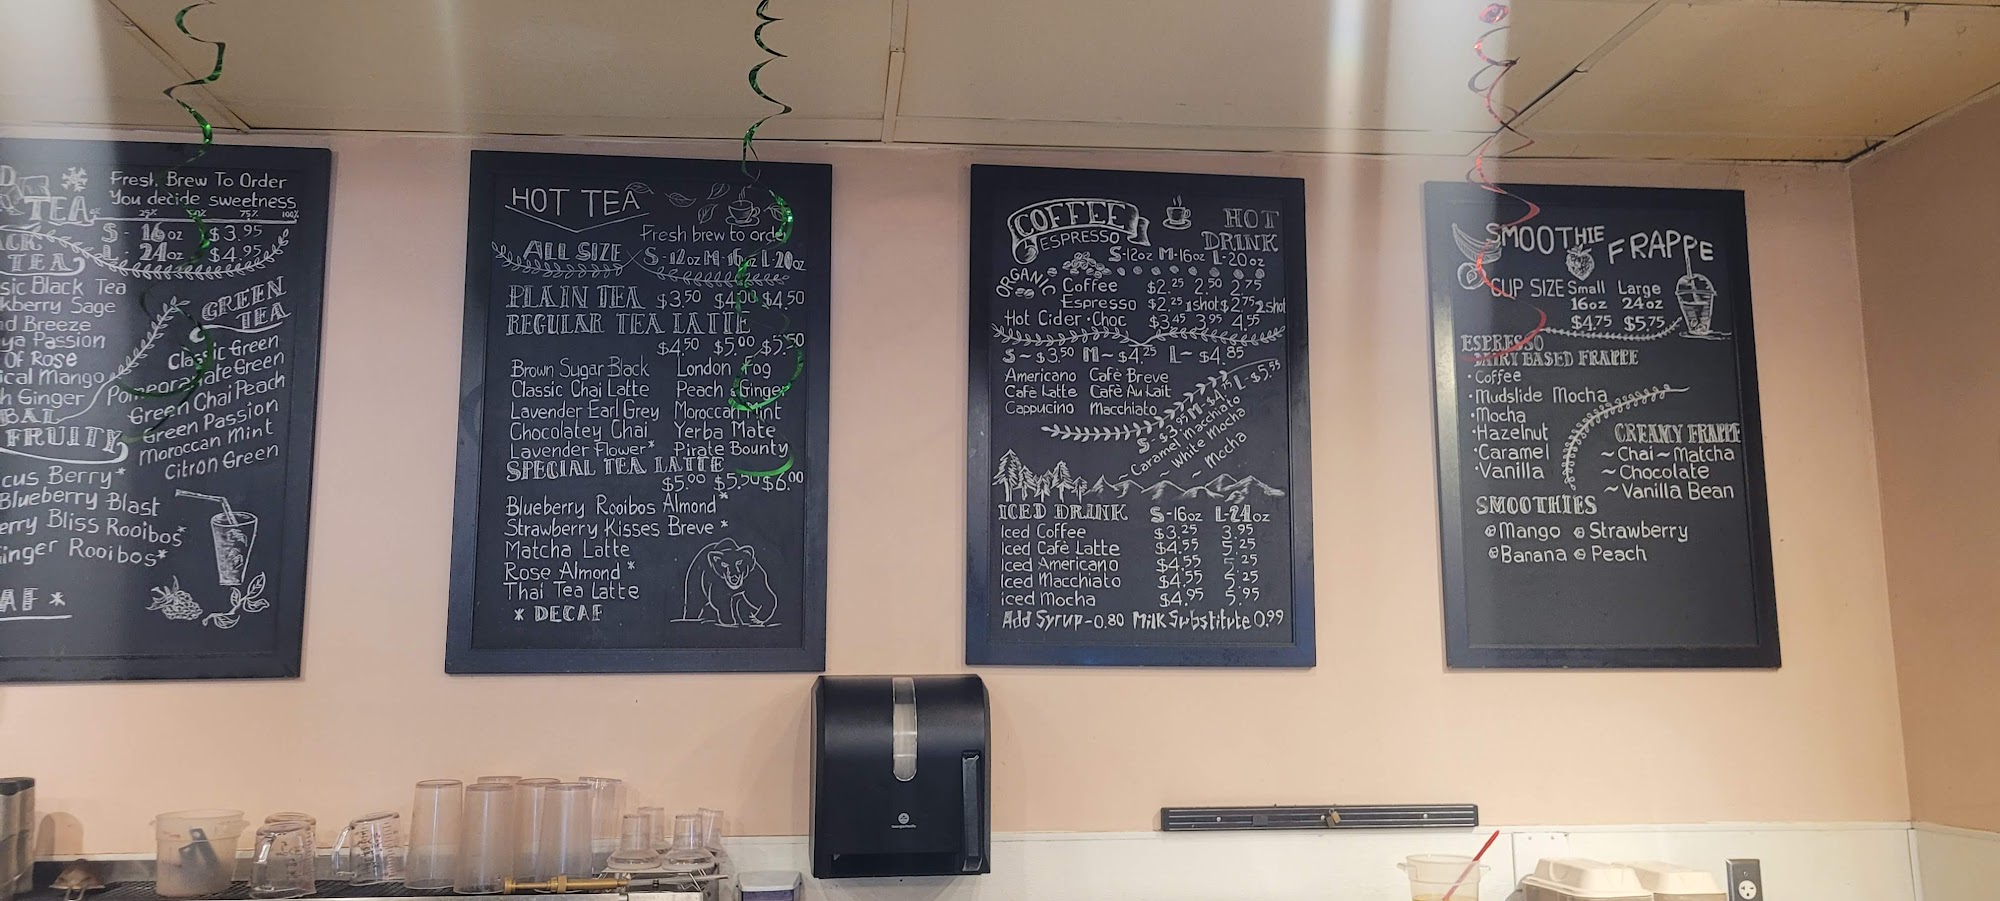 Fresh Brew To Order
You decide sweetness
TEA
25% 50% 75% 100%
S - 16oz $3.95
L - 24oz $4.95
TEA
Black Tea
Sage
Breeze
Passion
Of Rose
Mango
Ginger
FRUITY
Berry*
Blueberry Blast
Bliss Rooibos*
Ginger Rooibos*
*
GREEN
TEA
Classic Green
Pomegranate Green
Green Chai Peach
Green Passion
Moroccan Mint
Citron Green
HOT TEA
Fresh brew to order
ALL SIZE S-12oz M-16oz L-20oz
PLAIN TEA $3.50 $4.00 $4.50
REGULAR TEA LATTE
$4.50 $5.00 $5.50
Brown Sugar Black London Fog
Classic Chai Latte Peach & Ginger
Lavender Earl Grey Moroccan Mint
Chocolatey Chai Yerba Mate
Lavender Flower* Pirate Bounty
SPECIAL TEA LATTE
$5.00 $5.50 $6.00
Blueberry Rooibos Almond*
Strawberry Kisses Breve *
Matcha Latte
Rose Almond *
Thai Tea Latte
* DECAF
COFFEE
ESPRESSO
HOT
DRINK
S-12oz M-16oz L-20oz
ORGANIC
Coffee $2.25 2.50 2.75
Espresso $2.25 1shot $2.75 2shot
Hot Cider · Choc $3.45 3.95 4.55
S~ $3.50 M~ $4.25 L~ $4.85
Americano Cafè Breve
Cafè Latte Cafè Au Lait
Cappucino Macchiato
S-$3.95 M-$4.75 L-$5.55
~ Caramel Macchiato
~ White Mocha
~ Mocha
ICED DRINK S-16oz L-24oz
Iced Coffee $3.25 3.95
Iced Cafè Latte $4.55 5.25
Iced Americano $4.55 5.25
Iced Macchiato $4.55 5.25
iced Mocha $4.95 5.95
Add Syrup-0.80 Milk Substitute 0.99
SMOOTHIE
FRAPPE
CUP SIZE Small Large
16oz 24oz
$4.75 $5.75
ESPRESSO
DAIRY BASED FRAPPE
· Coffee
· Mudslide Mocha
· Mocha
· Hazelnut
· Caramel
· Vanilla
CREAMY FRAPPE
~ Chai ~ Matcha
~ Chocolate
~ Vanilla Bean
SMOOTHIES
Mango Strawberry
Banana Peach